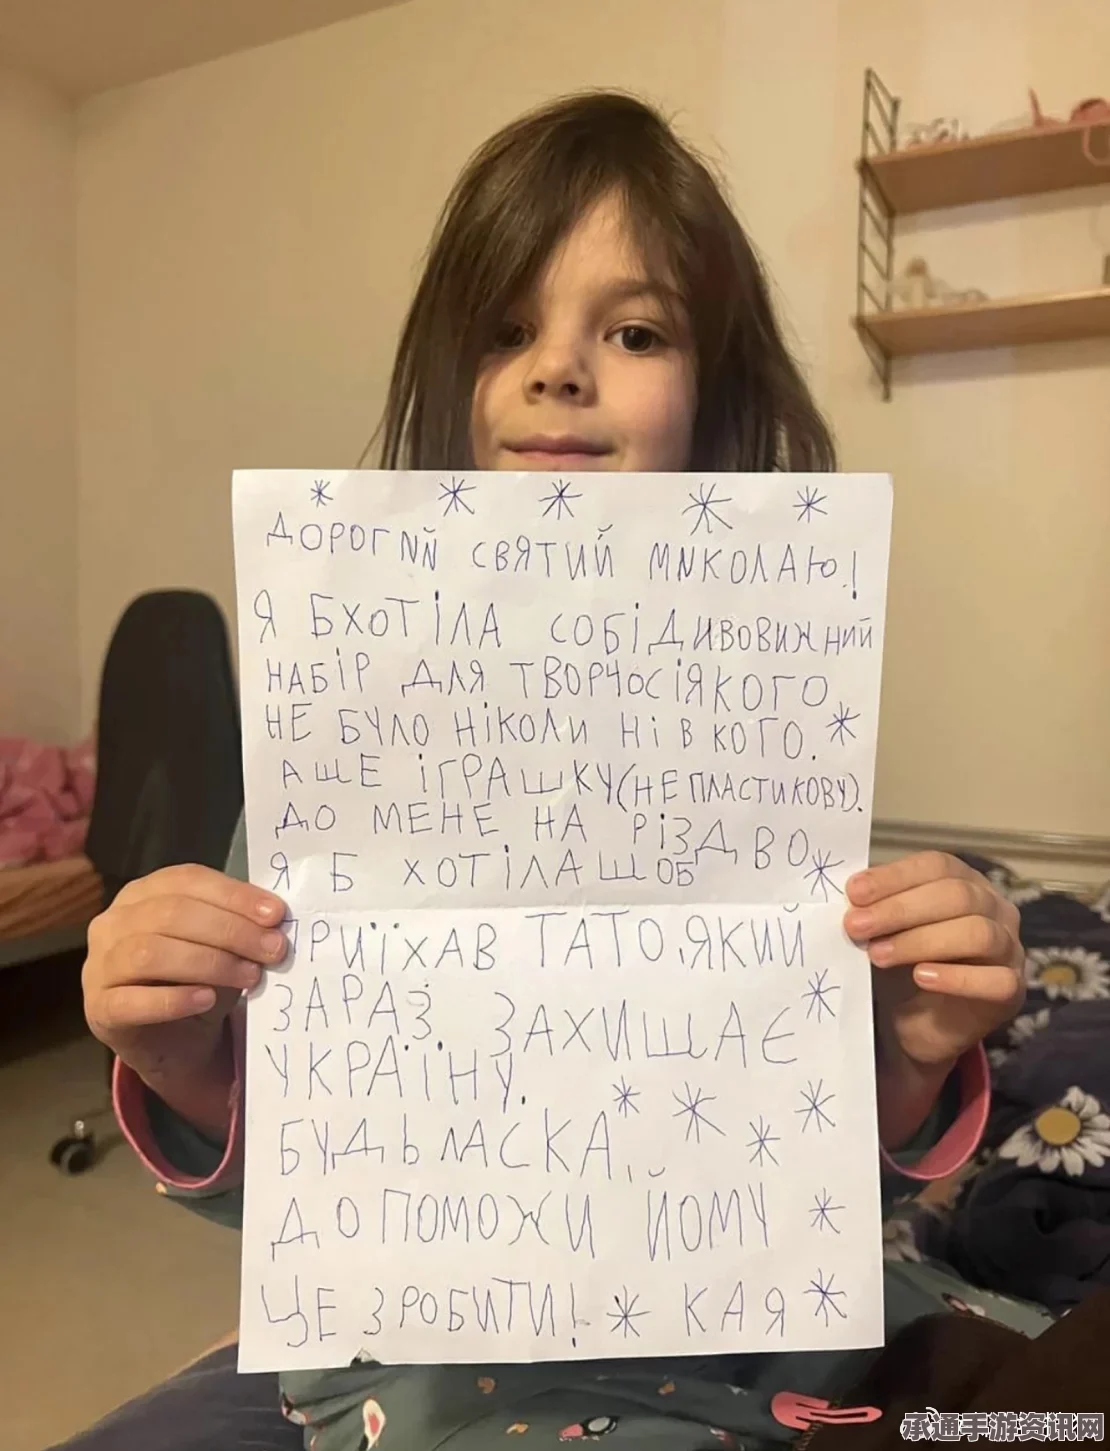 ДОРОГИЙ СВЯТИЙ МИКОЛАЮ!
Я БХОТІЛА СОБІ ДИВОВИЖНИЙ
НАБІР ДЛЯ ТВОРЧОСІ ЯКОГО
НЕ БУЛО НІКОЛИ НІ В КОГО.
А ЩЕ ІГРАШКУ (НЕ ПЛАСТИКОВУ).
ДО МЕНЕ НА РІЗДВО
Я Б ХОТІЛА ЩОБ
ПРИЇХАВ ТАТО, ЯКИЙ
ЗАРАЗ ЗАХИЩАЄ
УКРАЇНУ.
БУДЬ ЛАСКА,
ДОПОМОЖИ ЙОМУ
ЦЕ ЗРОБИТИ! КАЯ
承通手游资讯网